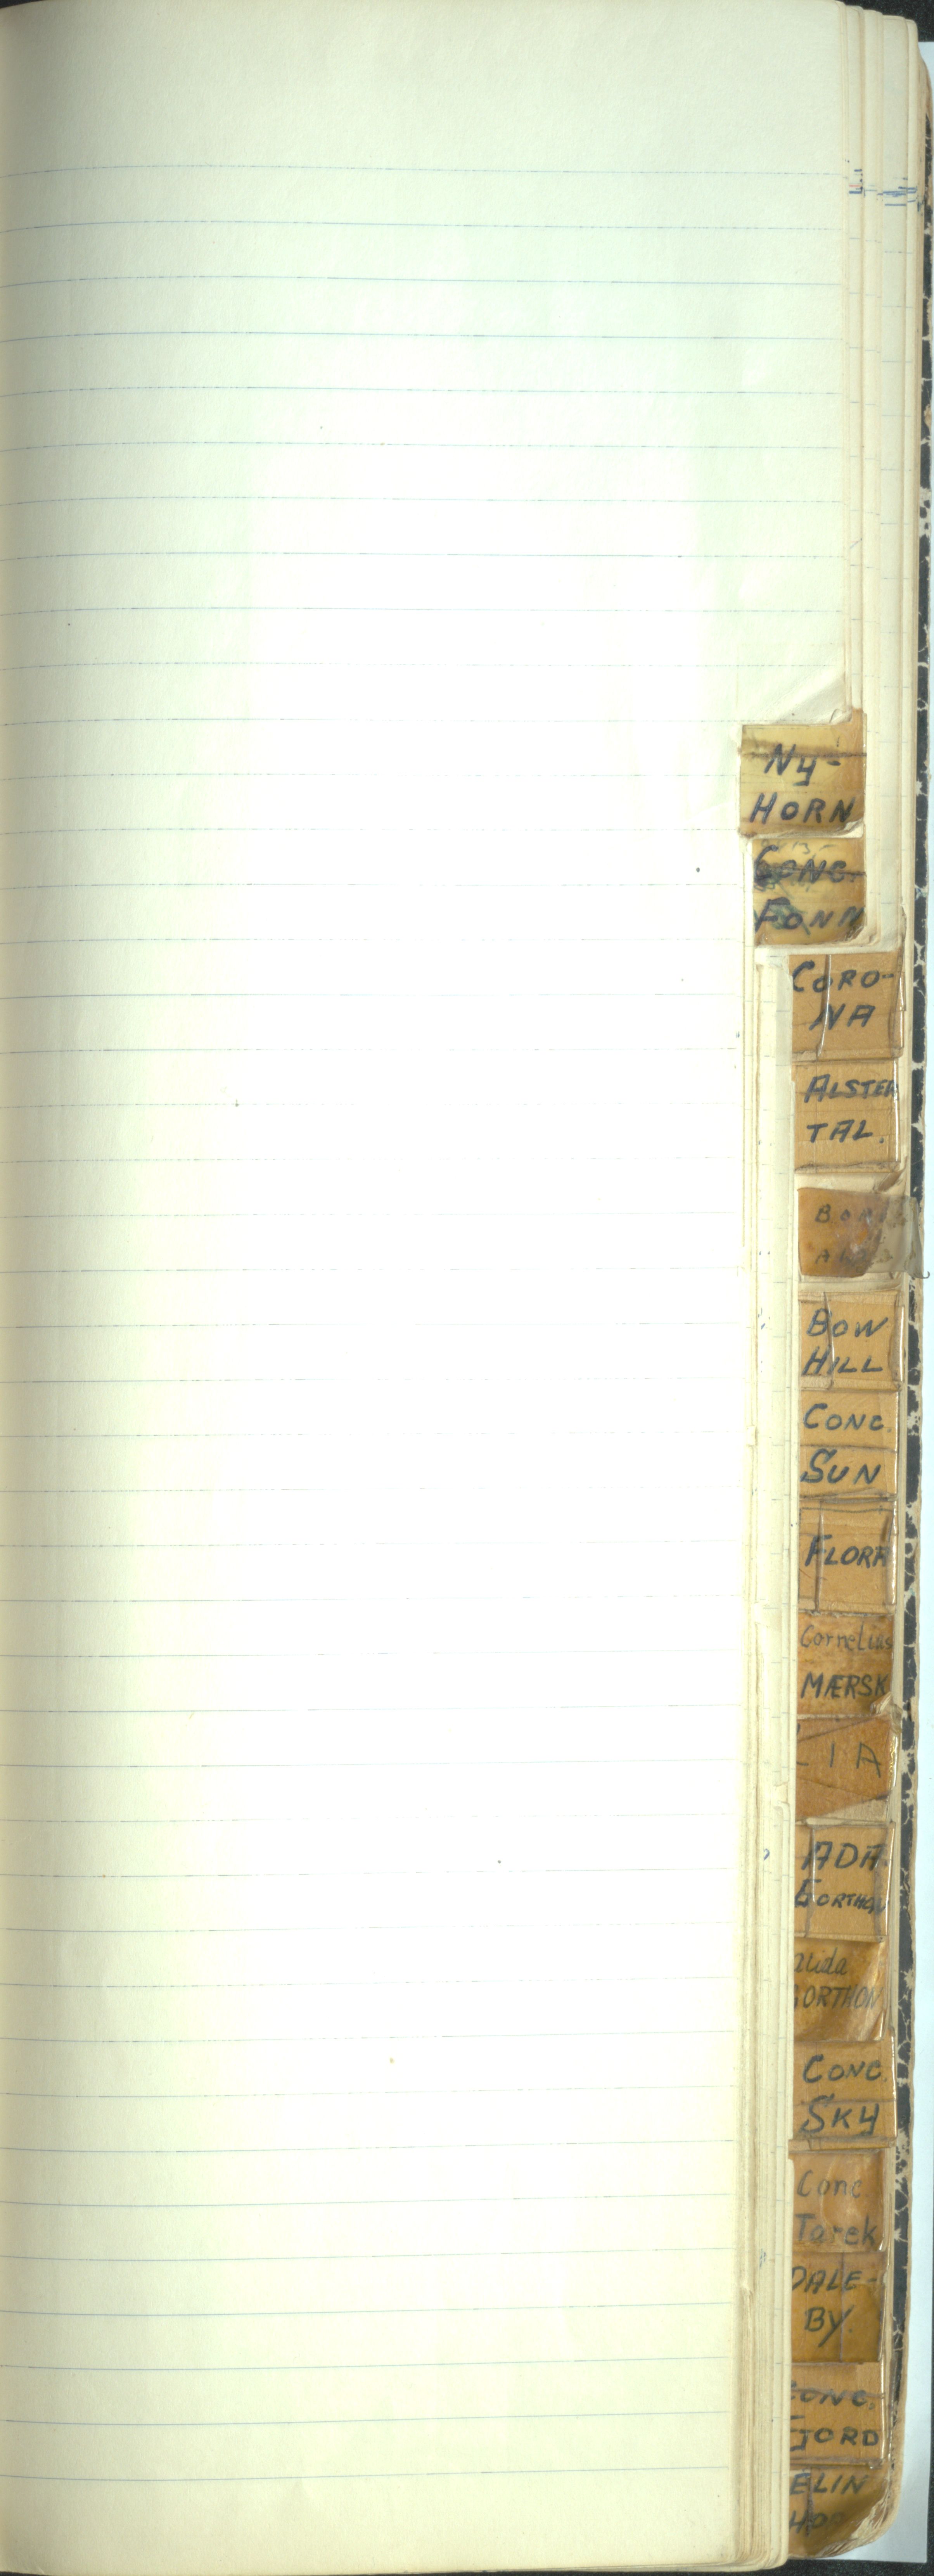 NY-
HORN
CONC.
FONN
CORO-
NA
ALSTER
TAL.
BOW
HILL
CONC.
SUN
FLORA
Cornelius
MÆRSK
LIA
ADA
GORTHON
GORTHON
CONC.
SKY
Conc
Tarek
DALE-
BY.
CONC.
FJORD
ELIN